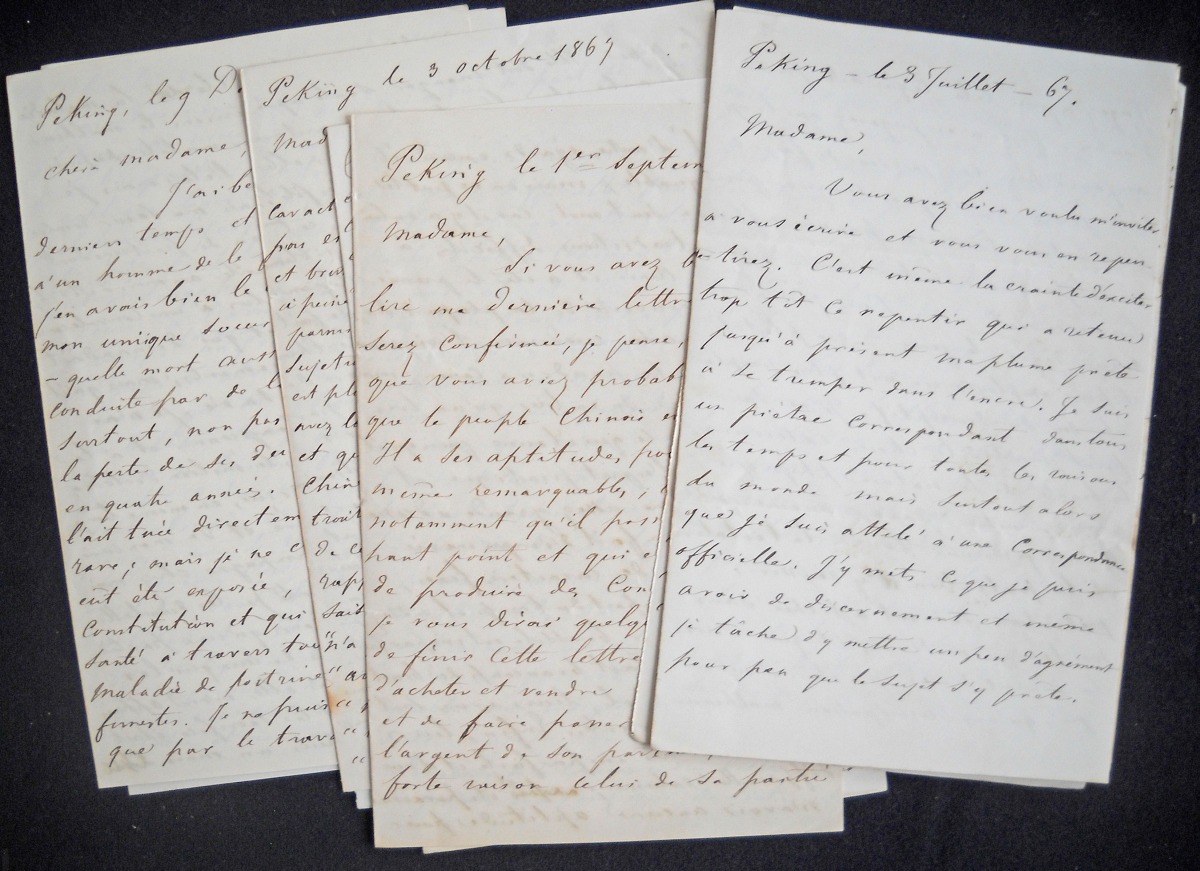 Peking, le 9 D
chère madame,
J'ai be
derniers temps et
d'un homme de le
j'en avais bien le
mon unique soeur
- quelle mort auss
conduite par de l
surtout, non pas
la perte de ses deu
en quatre années.
l'ait tuée directem
rare; mais je ne c
eût été exposée,
constitution et qui
santé à travers tou
maladie de poitrine
funestes. Je ne puis
que par le trava
Peking le 3 octobre 1867
Mad
caract
pas es
et brav
à peine
parmi
sujet
est ple
avez le
et qu
Chin
troit
de ce
rapp
sait
"n'a
" av
Peking le 1er Septem
Madame,
Si vous avez b
lire ma dernière lettr
serez confirmée, je pense,
que vous aviez probab
que le peuple Chinois e
Il a ses aptitudes, po
même remarquables,
notamment qu'il poss
haut point et qui e
de produire de, Con
je vous dirai quelqu
de finir cette lettre
d'acheter et vendre
et de faire passer
l'argent de son par
forte raison celui de sa partie
Peking - le 3 Juillet - 67.
Madame,
Vous avez bien voulu m'inviter
à vous écrire et vous vous en repen-
tirez. C'est même la crainte d'exciter
trop tôt ce repentir qui a retenu
jusqu'à présent ma plume prête
à se tremper dans l'encre. Je suis
un piètre correspondant dans tous
les temps et pour toutes les raisons
du monde mais surtout alors
que je suis attelé à une Correspondance
officielle. J'y mets ce que je puis
avoir de discernement et même
je tâche d'y mettre un peu d'agrément
pour peu que le sujet s'y prête.